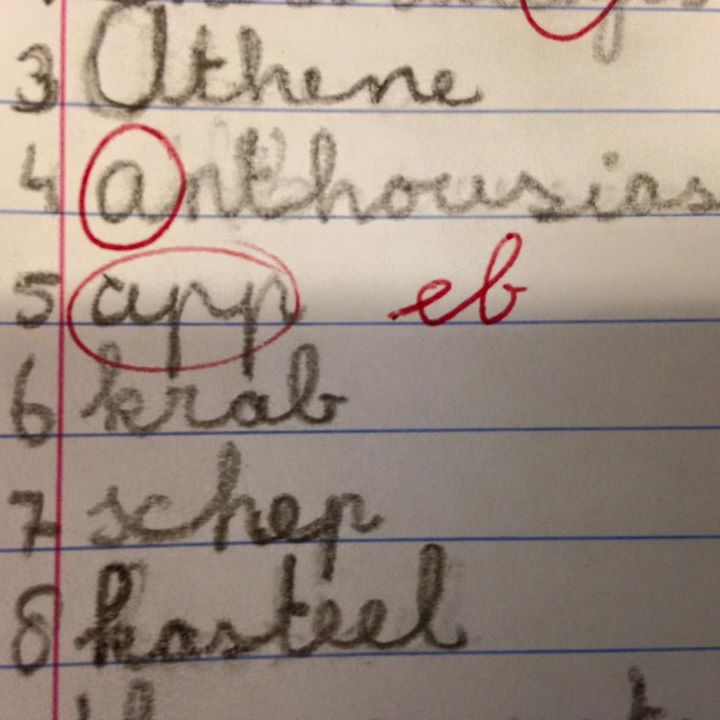 3 Athene
4 anthousias
5 app eb
6 krab
7 schep
8 kasteel